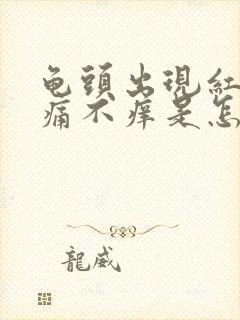 龟頭出現紅
痛不痒是怎
龍威